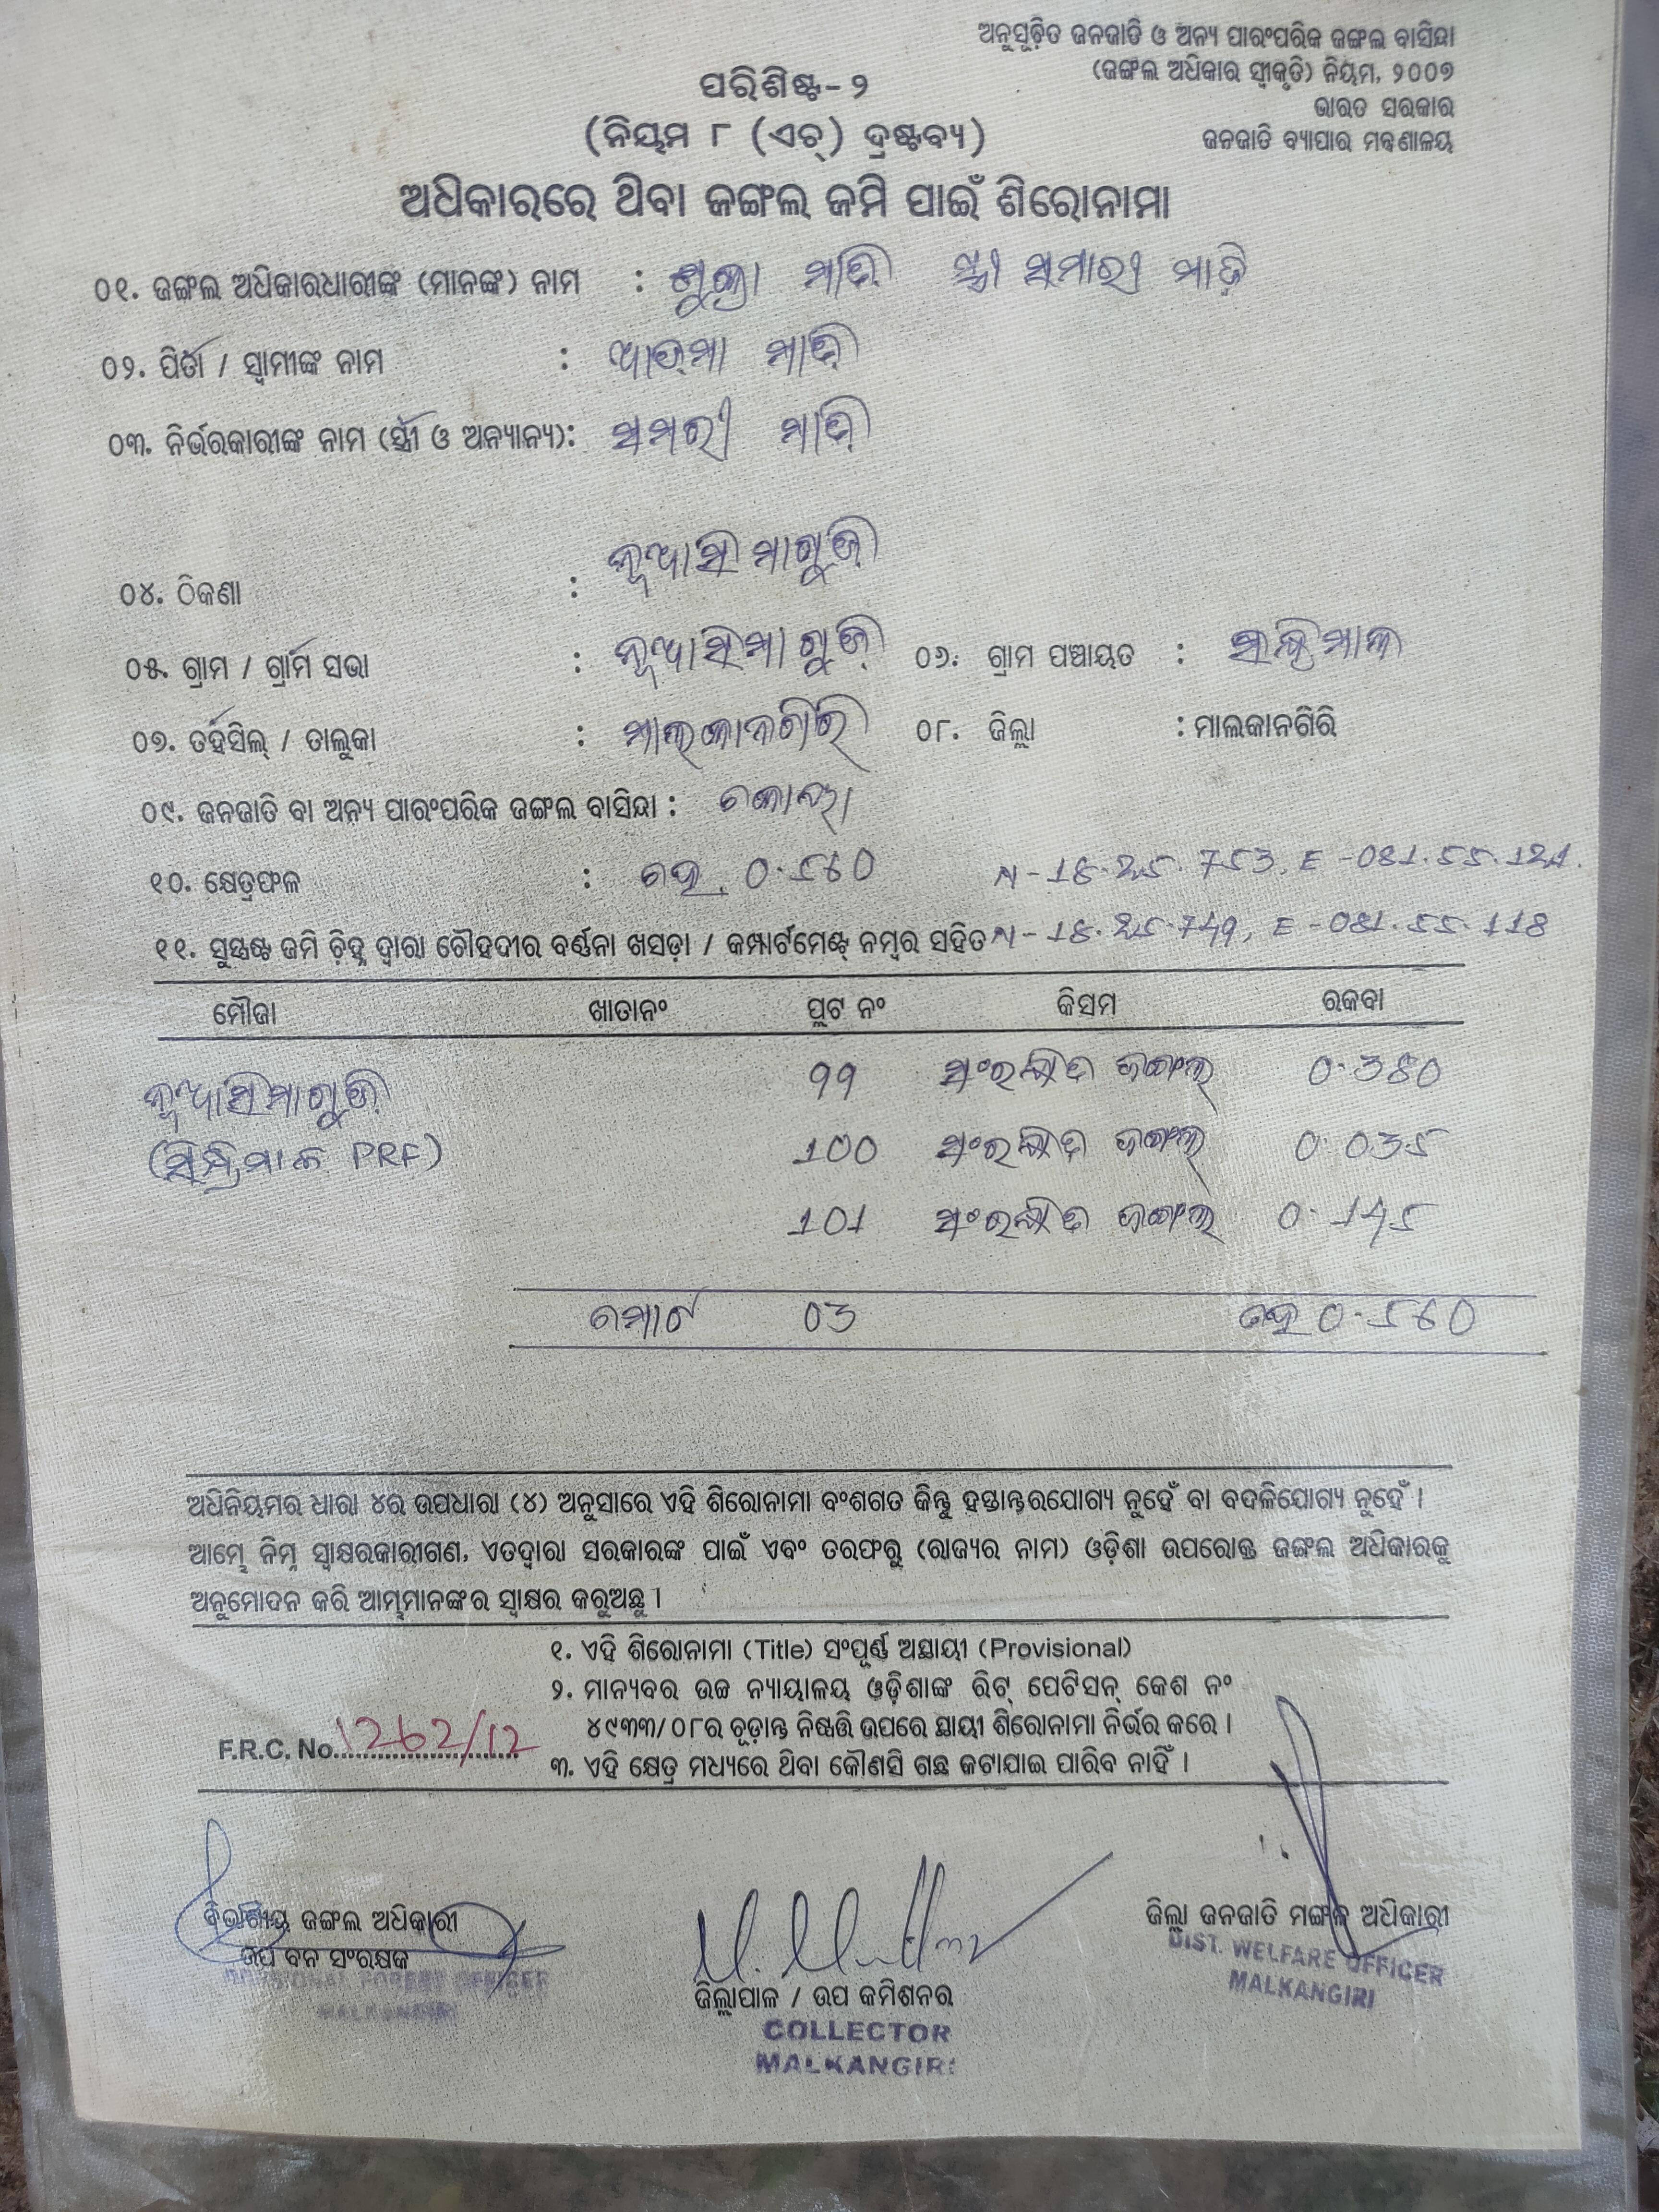 ଅନୁସୂଚିତ ଜନଜାତି ଓ ଅନ୍ୟ ପାରଂପରିକ ଜଙ୍ଗଲ ବାସିନ୍ଦା
(ଜଙ୍ଗଲ ଅଧିକାର ସ୍ୱୀକୃତି) ନିୟମ, ୨୦୦୭
ଭାରତ ସରକାର
ଜନଜାତି ବ୍ୟାପାର ମନ୍ତ୍ରଣାଳୟ
ପରିଶିଷ୍ଟ-୨
(ନିୟମ ୮ (ଏଚ୍) ଦ୍ରଷ୍ଟବ୍ୟ)
ଅଧିକାରରେ ଥିବା ଜଙ୍ଗଲ ଜମି ପାଇଁ ଶିରୋନାମା
୦୧. ଜଙ୍ଗଲ ଅଧିକାରଧାରୀଙ୍କ (ମାନଙ୍କ) ନାମ : ମାଡ଼ି ସ୍ତ୍ରୀ ସମାରୀ ମାଡ଼ି
୦୨. ପିତା / ସ୍ୱାମୀଙ୍କ ନାମ : ମାଡ଼ି
୦୩. ନିର୍ଭରକାରୀଙ୍କ ନାମ (ସ୍ତ୍ରୀ ଓ ଅନ୍ୟାନ୍ୟ): ସମରୀ ମାଡ଼ି
୦୪. ଠିକଣା :
୦୫. ଗ୍ରାମ / ଗ୍ରାମ ସଭା : ୦୬. ଗ୍ରାମ ପଞ୍ଚାୟତ :
୦୭. ତହସିଲ୍ / ତାଲୁକା : ମାଲକାନଗିରି ୦୮. ଜିଲ୍ଲା : ମାଲକାନଗିରି
୦୯. ଜନଜାତି ବା ଅନ୍ୟ ପାରଂପରିକ ଜଙ୍ଗଲ ବାସିନ୍ଦା : କୋୟା
୧୦. କ୍ଷେତ୍ରଫଳ : ହେ. 0.560 N-18.25.753, E-081.55.121.
୧୧. ସୁସ୍ପଷ୍ଟ ଜମି ଚିହ୍ନ ଦ୍ୱାରା ଚୌହଦୀର ବର୍ଣ୍ଣନା ଖସଡ଼ା / କମ୍ପାର୍ଟମେଣ୍ଟ୍ ନମ୍ବର ସହିତ N-18.25.749, E-081.55.118
ମୌଜା ଖାତାନଂ ପ୍ଲଟ ନଂ କିସମ ରକବା
99 ସଂରକ୍ଷିତ ଜଙ୍ଗଲ 0.380
(PRF) 100 ସଂରକ୍ଷିତ ଜଙ୍ଗଲ 0.035
101 ସଂରକ୍ଷିତ ଜଙ୍ଗଲ 0.145
ମୋଟ 03 ହେ 0.560
ଅଧିନିୟମର ଧାରା ୪ର ଉପଧାରା (୪) ଅନୁସାରେ ଏହି ଶିରୋନାମା ବଂଶଗତ କିନ୍ତୁ ହସ୍ତାନ୍ତରଯୋଗ୍ୟ ନୁହେଁ ବା ବଦଳିଯୋଗ୍ୟ ନୁହେଁ ।
ଆମ୍ଭେ ନିମ୍ନ ସ୍ୱାକ୍ଷରକାରୀଗଣ, ଏତଦ୍ୱାରା ସରକାରଙ୍କ ପାଇଁ ଏବଂ ତରଫରୁ (ରାଜ୍ୟର ନାମ) ଓଡ଼ିଶା ଉପରୋକ୍ତ ଜଙ୍ଗଲ ଅଧିକାରକୁ
ଅନୁମୋଦନ କରି ଆମ୍ଭମାନଙ୍କର ସ୍ୱାକ୍ଷର କରୁଅଛୁ ।
୧. ଏହି ଶିରୋନାମା (Title) ସଂପୂର୍ଣ୍ଣ ଅସ୍ଥାୟୀ (Provisional)
୨. ମାନ୍ୟବର ଉଚ୍ଚ ନ୍ୟାୟାଳୟ ଓଡ଼ିଶାଙ୍କ ରିଟ୍ ପେଟିସନ୍ କେଶ ନଂ
୪୯୩୩/୦୮ର ଚୂଡ଼ାନ୍ତ ନିଷ୍ପତ୍ତି ଉପରେ ସ୍ଥାୟୀ ଶିରୋନାମା ନିର୍ଭର କରେ ।
F.R.C. No. 1262/12
୩. ଏହି କ୍ଷେତ୍ର ମଧ୍ୟରେ ଥିବା କୌଣସି ଗଛ କଟାଯାଇ ପାରିବ ନାହିଁ ।
ବିଭାଗୀୟ ଜଙ୍ଗଲ ଅଧିକାରୀ
ଉପ ବନ ସଂରକ୍ଷକ
DIVISIONAL FOREST OFFICER
MALKANGIRI
ଜିଲ୍ଲାପାଳ / ଉପ କମିଶନର
COLLECTOR
MALKANGIRI
ଜିଲ୍ଲା ଜନଜାତି ମଙ୍ଗଳ ଅଧିକାରୀ
DIST. WELFARE OFFICER
MALKANGIRI